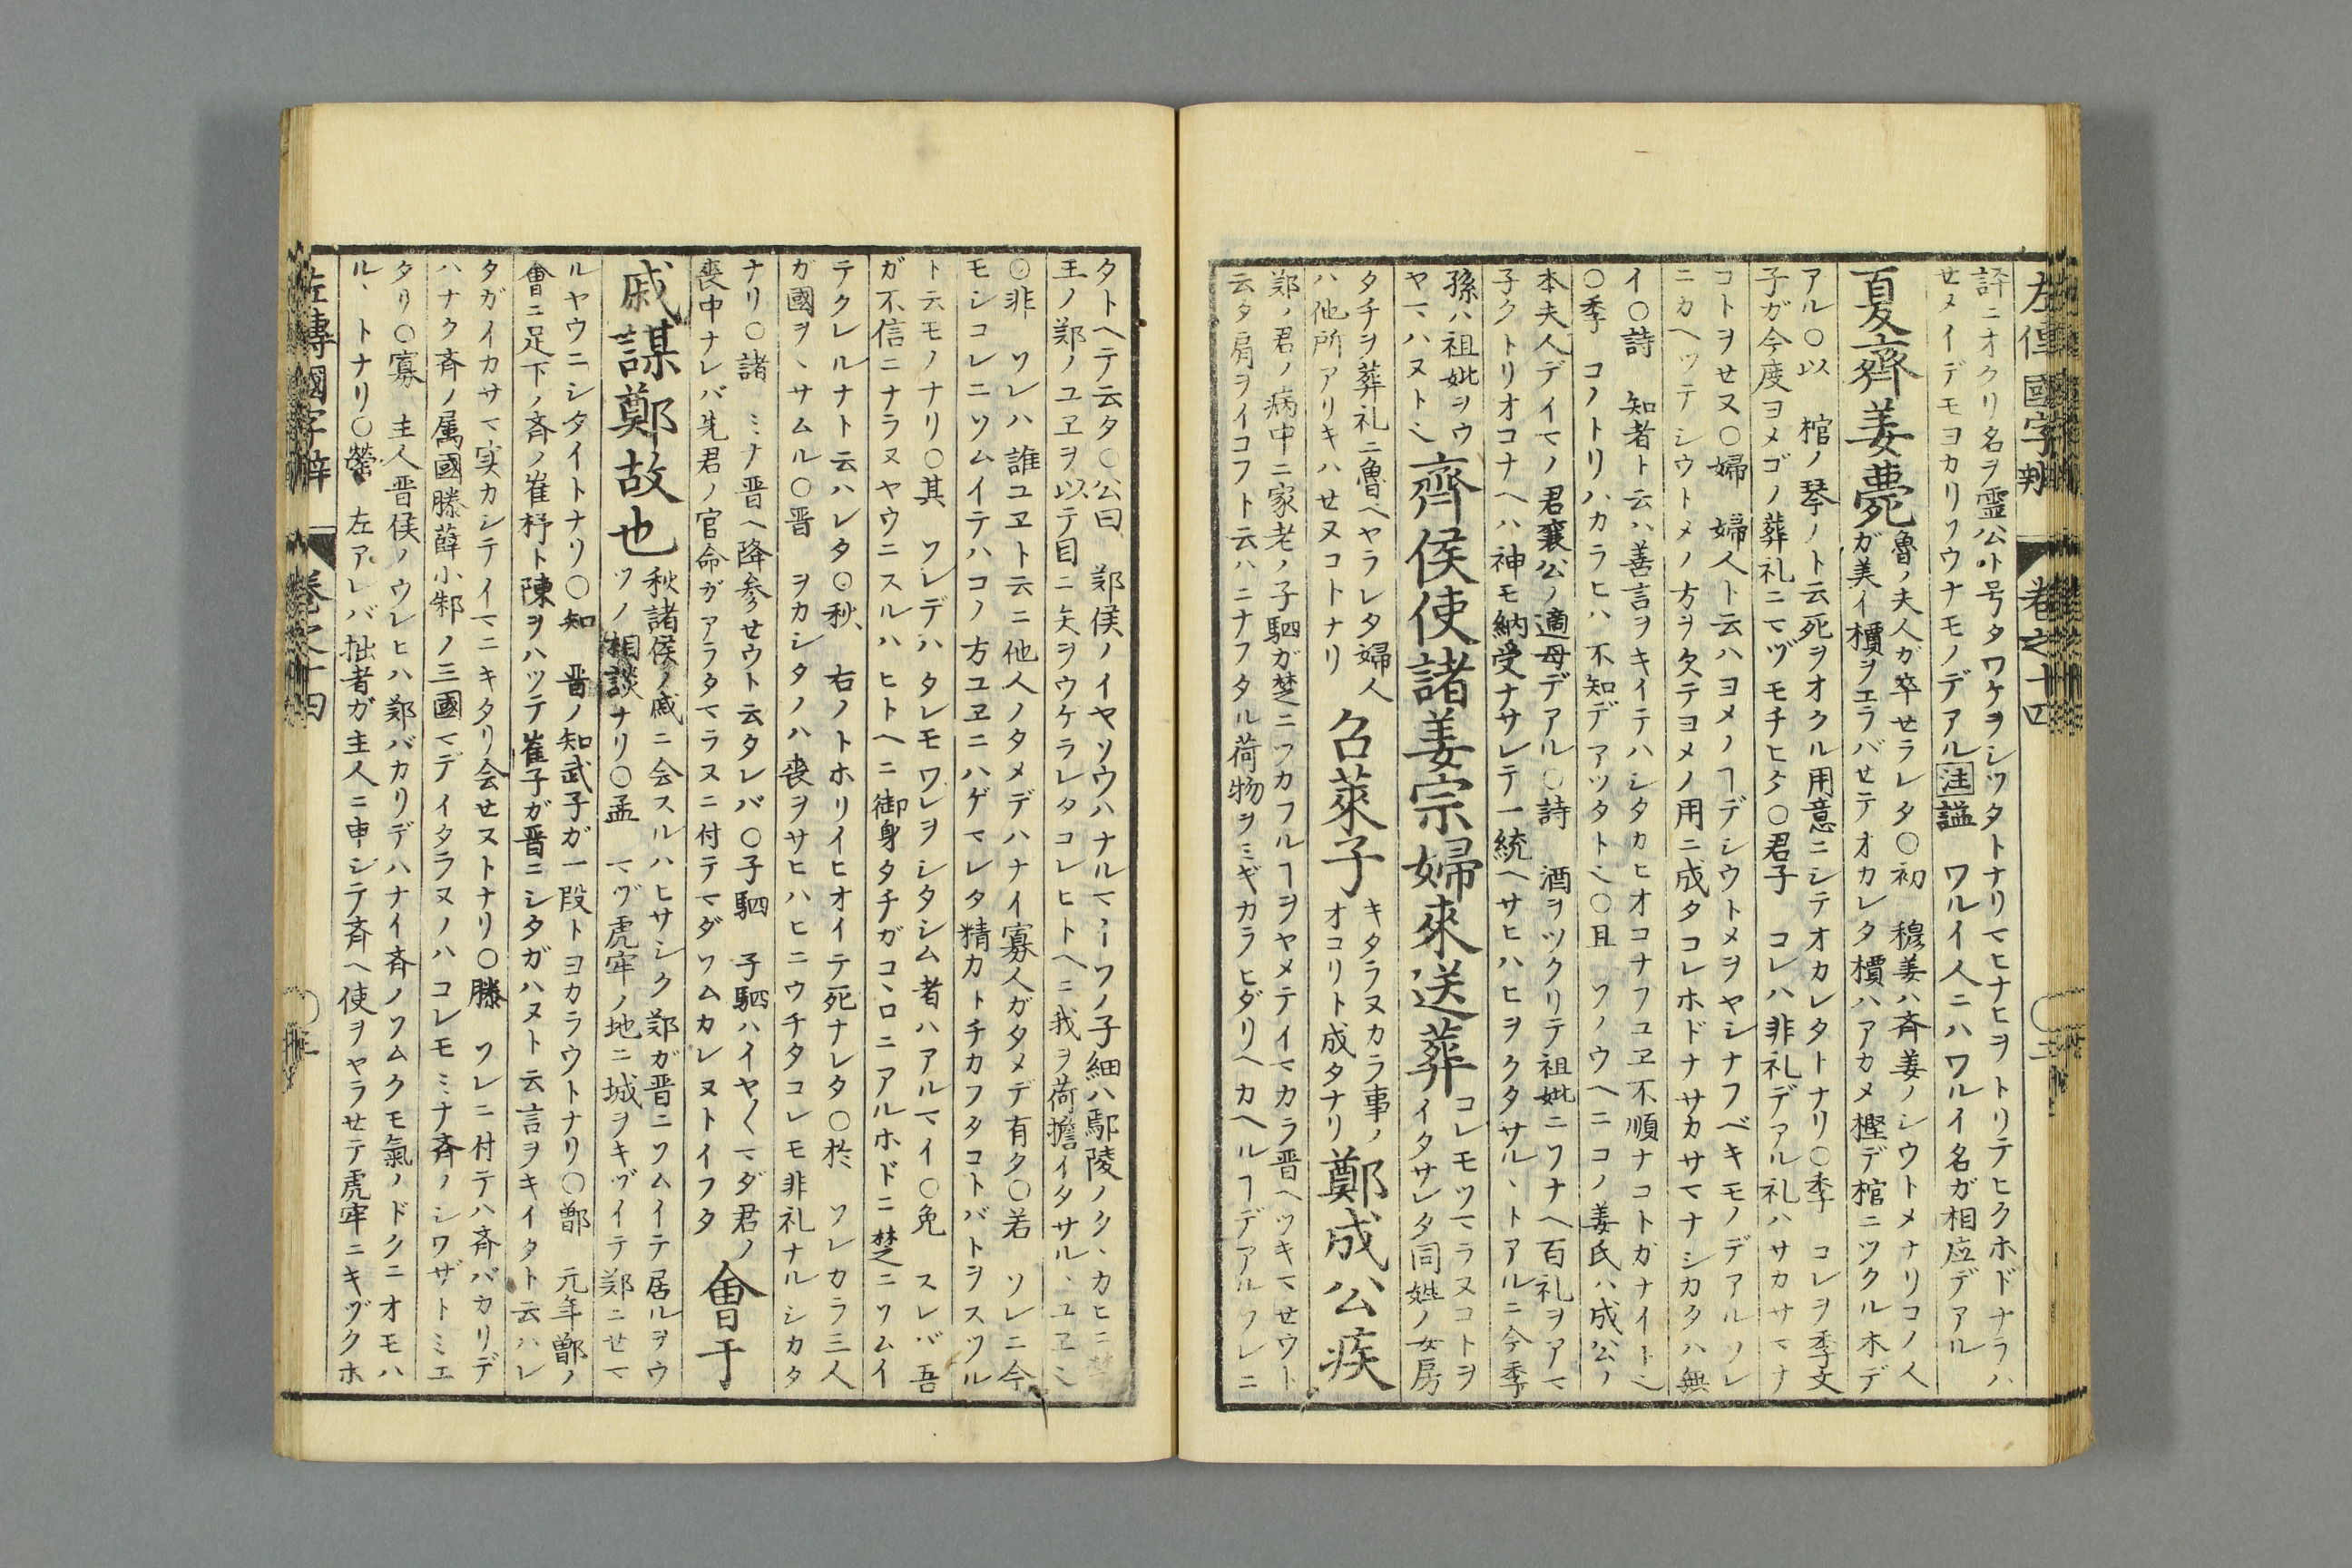 左傳國字辨 巻之十四 二
諱ニオクリ名ヲ霊公ト号タワケヲシツタトナリマヒナヒヲトリテヒクホドナラハ
セヌイデモヨカリソウナモノデアル注謚 ワルイ人ニハワルイ名ガ相应デアル
夏齊姜薨
魯ノ夫人ガ卒セラレタ○初 穆姜ハ斉姜ノシウトメナリコノ人
ガ美イ檟ヲエラバセテオカレタ檟ハアカメ樫デ棺ニツクル木デ
アル○以 棺ノ琴ノト云死ヲオクル用意ニシテオカレタトナリ○季 コレヲ季文
子ガ今度ヨメゴノ葬礼ニマヅモチヒタ○君子 コレハ非礼デアル礼ハサカサマナ
コトヲセヌ○婦 婦人ト云ハヨメノヿデシウトメヲヤシナフベキモノデアルソレ
ニカヘツテシウトメノ方ヲ欠テヨメノ用ニ成タコレホドナサカサマナシカタハ無
イ○詩 知者ト云ハ善言ヲキイテハシタカヒオコナフユヱ不順ナコトガナイト也
○季 コノトリハカラヒハ不知デアツタト也○且 ソノウヘニコノ姜氏ハ成公ノ
本夫人デイマノ君襄公ノ適母デアル○詩 酒ヲツクリテ祖妣ニソナヘ百礼ヲアマ
子クトリオコナヘハ神モ納受ナサレテ一統ヘサヒハヒヲクタサル丶トアルニ今季
孫ハ祖妣ヲウ
ヤマハヌト也
齊侯使諸姜宗婦來送葬
コレモツマラヌコトヲ
イタサレタ同姓ノ女房
タチヲ葬礼ニ魯ヘヤラレタ婦人
ハ他所アリキハセヌコトナリ
召萊子
キタラヌカラ事ノ
オコリト成タナリ
鄭成公疾
鄭ノ君ノ病中ニ家老ノ子駟ガ楚ニツカフルヿヲヤメテイマカラ晋ヘツキマセウト
云タ肩ヲイコフト云ハニナフタル荷物ヲミギカラヒダリヘカヘルヿデアルソレニ
タトヘテ云タ○公曰 鄭侯ノイヤソウハナルマイソノ子細ハ鄢陵ノタ丶カヒニ楚
王ノ鄭ノユヱヲ以テ目ニ矢ヲウケラレタコレヒトヘニ我ヲ荷擔イタサル丶ユヱ也
○非 ソレハ誰ユヱト云ニ他人ノタメデハナイ寡人ガタメデ有タ○若 ソレニ今
モシコレニソムイテハコノ方ユヱニハゲマレタ精力トチカフタコトバトヲスツル
ト云モノナリ○其 ソレデハタレモワレヲシタシム者ハアルマイ○免 スレバ吾
ガ不信ニナラヌヤウニスルハヒトヘニ御身タチガコ丶ロニアルホドニ楚ニソムイ
テクレルナト云ハレタ○秋 右ノトホリイヒオイテ死ナレタ○於 ソレカラ三人
ガ國ヲ丶サムル○晋 ヲカシタノハ喪ヲサヒハヒニウチタコレモ非礼ナルシカタ
ナリ○諸 ミナ晋ヘ降参セウト云タレバ○子駟 子駟ハイヤ〱マダ君ノ
喪中ナレバ先君ノ官命ガアラタマラヌニ付テマダソムカレヌトイフタ
會于
戚謀鄭故也
秋諸侯ノ戚ニ会スルハヒサシク鄭ガ晋ニソムイテ居ルヲウ
ツノ相談ナリ○孟 マヅ虎牢ノ地ニ城ヲキヅイテ鄭ニセマ
ルヤウニシタイトナリ○知 晋ノ知武子ガ一段トヨカラウトナリ○鄫 元年鄫ノ
會ニ足下ノ斉ノ崔杼ト陳ヲハツテ崔子ガ晋ニシタガハヌト云言ヲキイタト云ハレ
タガイカサマ実カシテイマニキタリ会セヌトナリ○滕 ソレニ付テハ斉バカリデ
ハナク斉ノ属國滕薛小邾ノ三國マデイタラヌノハコレモミナ斉ノシワザトミエ
タリ○寡 主人晋侯ノウレヒハ鄭バカリデハナイ斉ノソムクモ氣ノドクニオモハ
ル丶トナリ○罃 左アレバ拙者ガ主人ニ申シテ斉ヘ使ヲヤラセテ虎牢ニキヅクホ
左傳國字辨 巻之十四 三